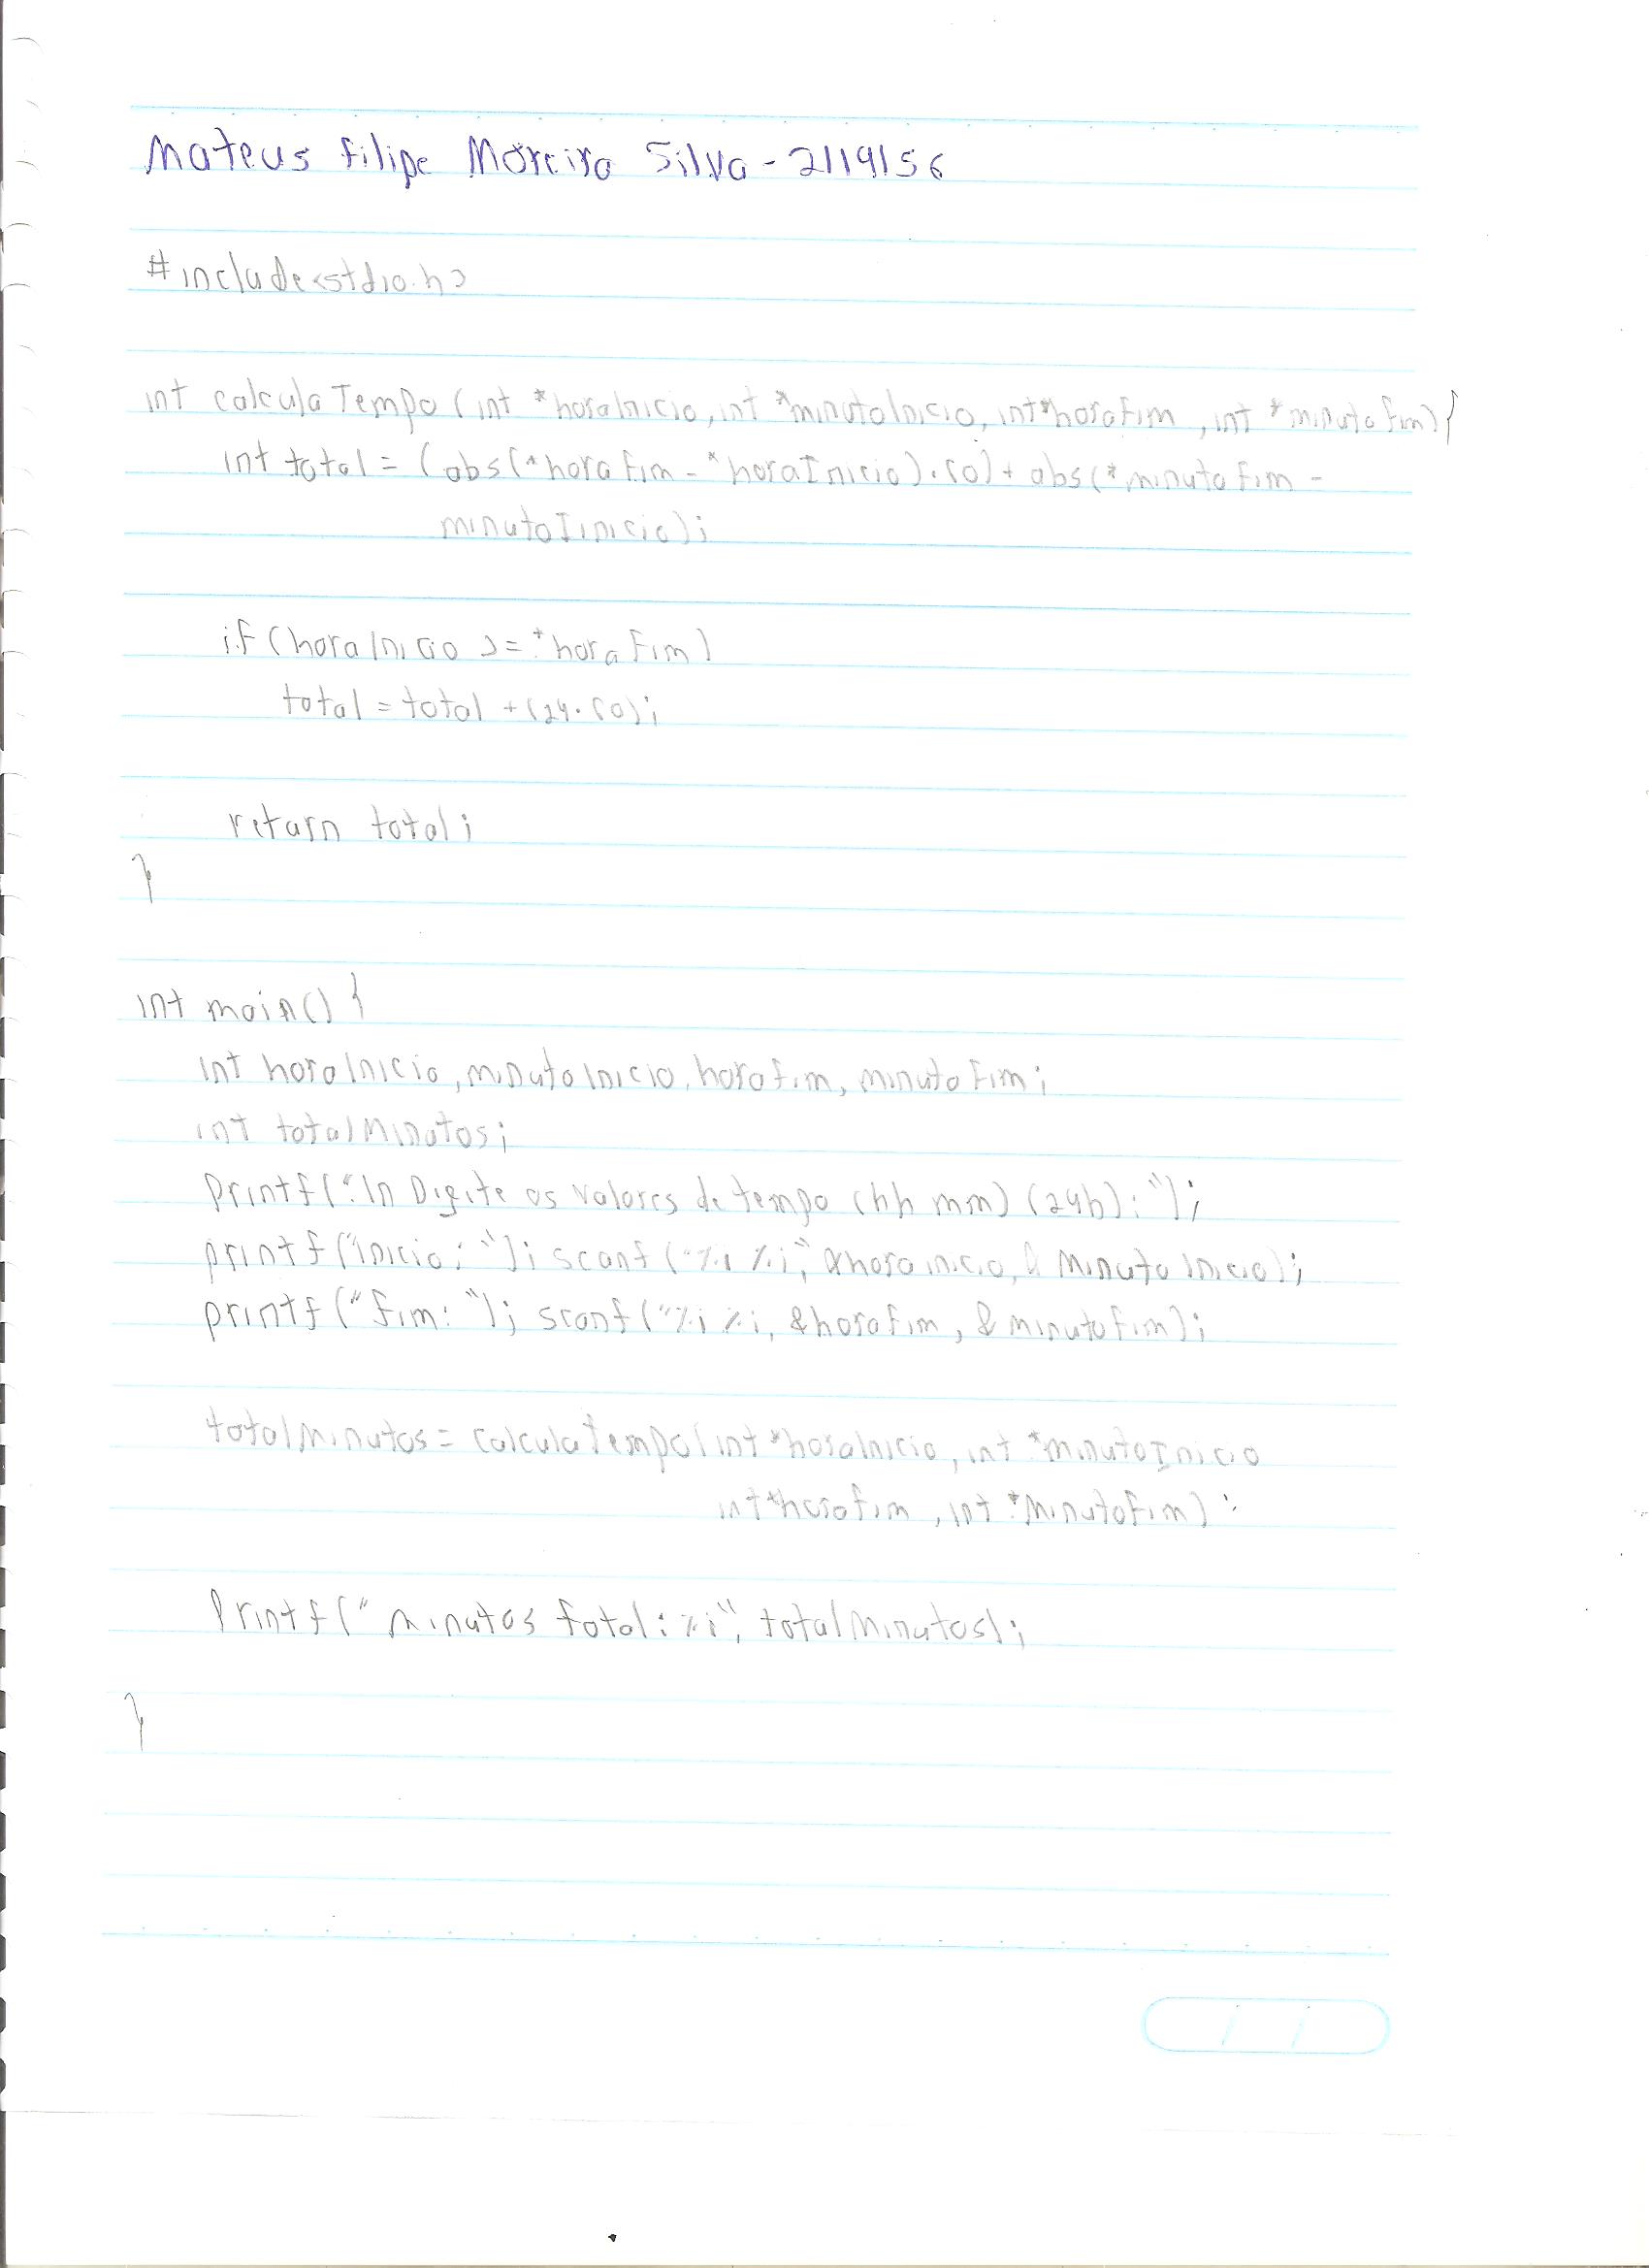 Mateus Filipe Moreira Silva - 2119156
#include<stdio.h>
int calculaTempo (int *horaInicio, int *minutoInicio, int *horaFim, int *minutoFim){
int total = (abs(*horaFim - *horaInicio).60) + abs(*minutoFim -
minutoIinicio);
if (horaInicio >= *horaFim)
total = total + (24.60);
return total;
}
int main() {
int horaInicio, minutoInicio, horaFim, minutoFim;
int totalMinutos;
printf("\n Digite os valores de tempo (hh mm) (24h): ");
printf("inicio: "); scanf("%i %i", &horainicio, & MinutoInicio);
printf("fim: "); scanf("%i %i, &horaFim, &minutoFim);
totalMinutos = calculaTempo(int *horaInicio, int *minutoInicio
int *horaFim, int *MinutoFim);
Printf("Minutos total: %i", totalMinutos);
}